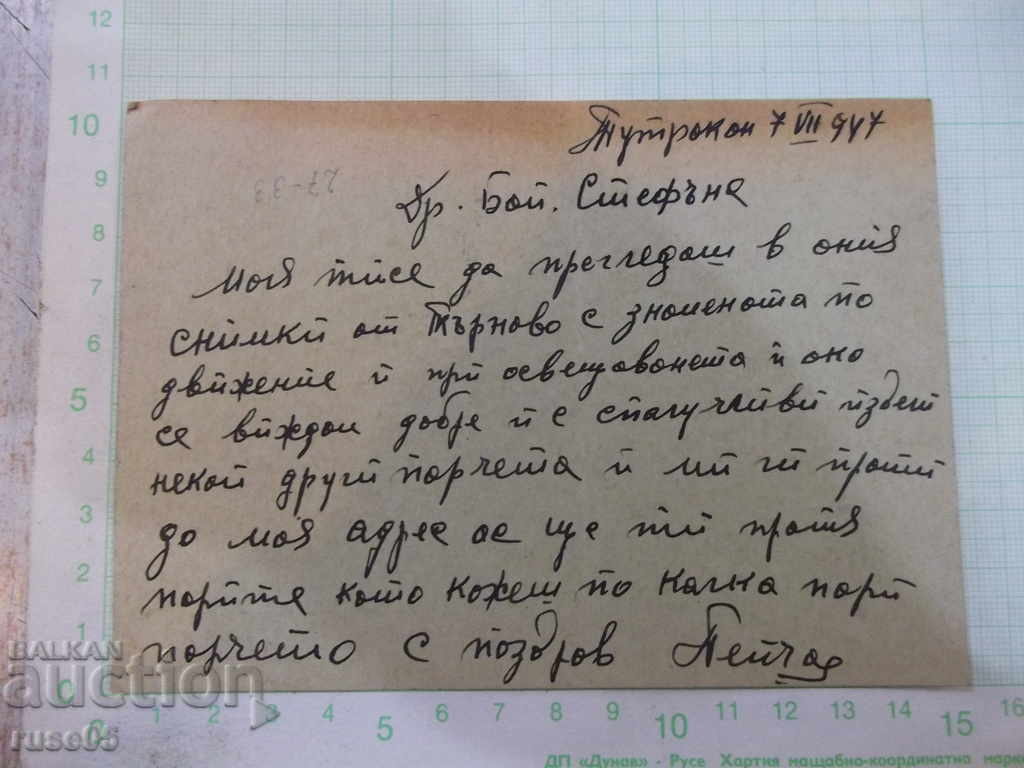 Тутрокон 7 VII 947
27-33
Др. Бой. Стефъне
Моля тисе да прегледаш в ония
снимки от Търново с зномената по
движение и при освещованета и око
се виждол добре и с сполучливи избери
некой други порчета и ми ги прати
до моя адрес ое ще ти протя
порите кото кожеш по колко пори
порчето с поздров Пейчав
12
11
10
9
8
7
6
5
4
3
2
1
0
0 1 2 3 4 5 6 7 8 9 10 11 12 13 14 15 16
BALKAN
auction
ruse05
ДП «Дунав» - Русе Хартия мащабно-координатна